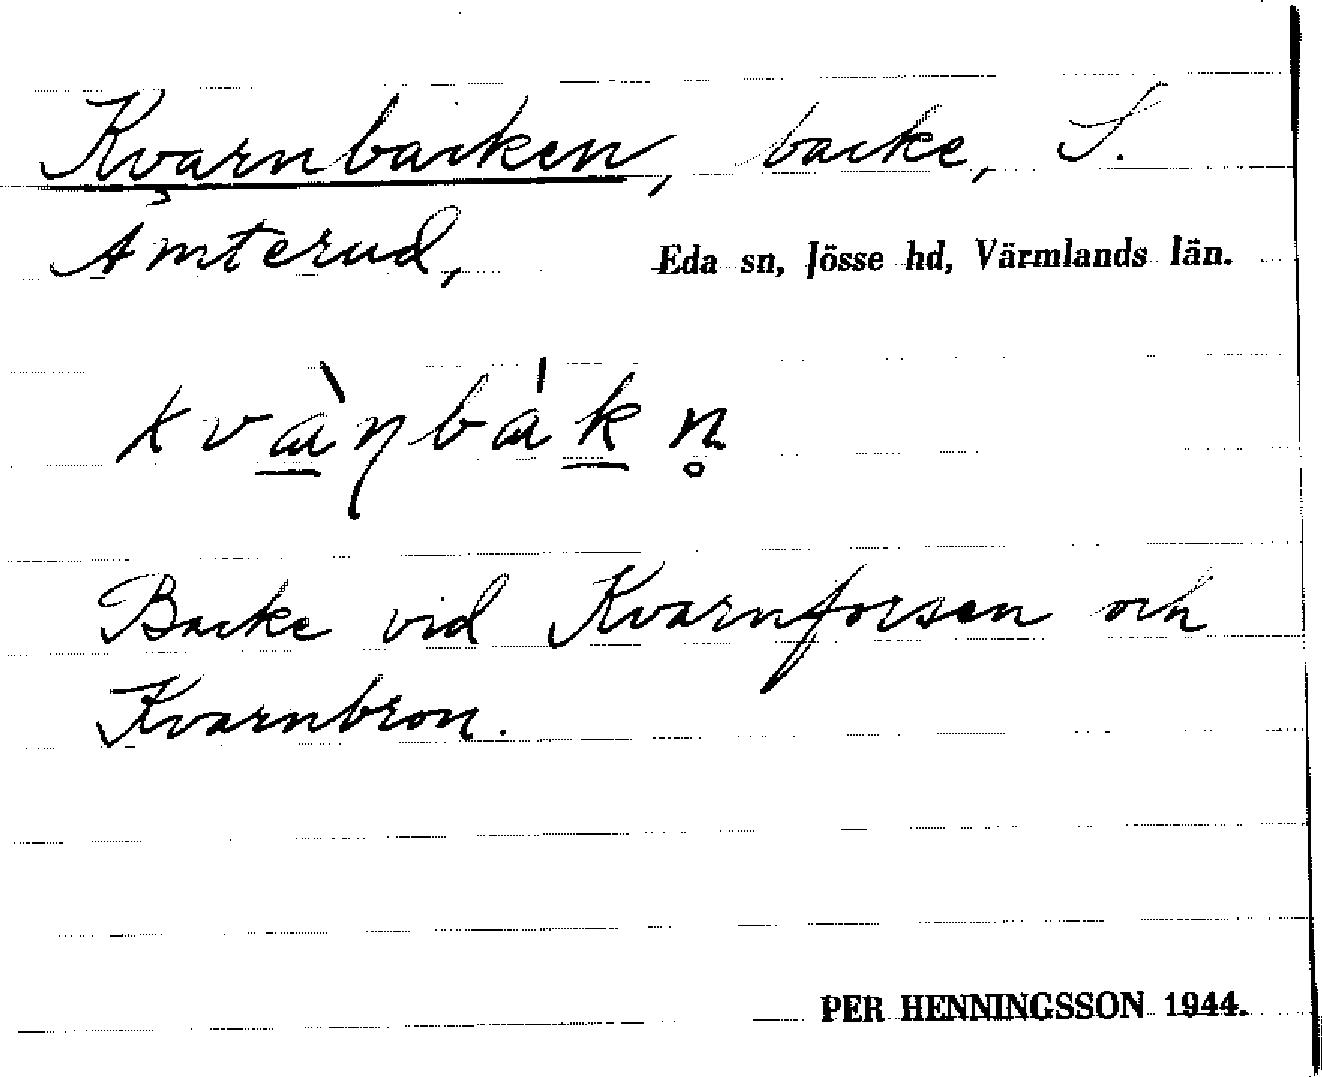 Kvarnbacken, backe, S.
Åmterud, Eda sn, Jösse hd, Värmlands län.
kvàɳbákn̥
Backe vid Kvarnforsen och
Kvarnbron.
PER HENNINGSSON 1944.